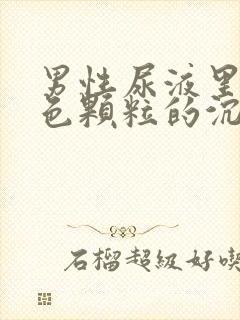 男性尿液里
色顆粒的沉
石榴超級好喫